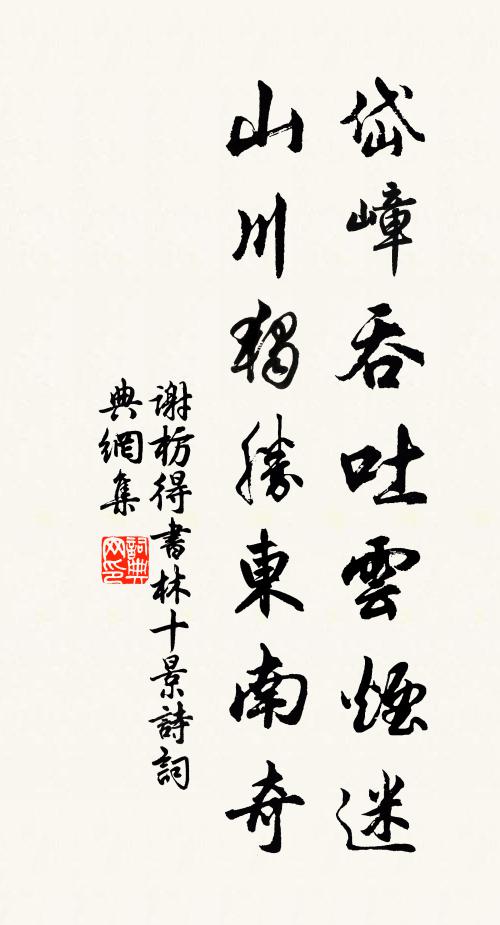 岱嶂吞吐雲煙迷
山川獨勝東南奇
謝枋得書林十景詩詞
典網集
詞典
网印